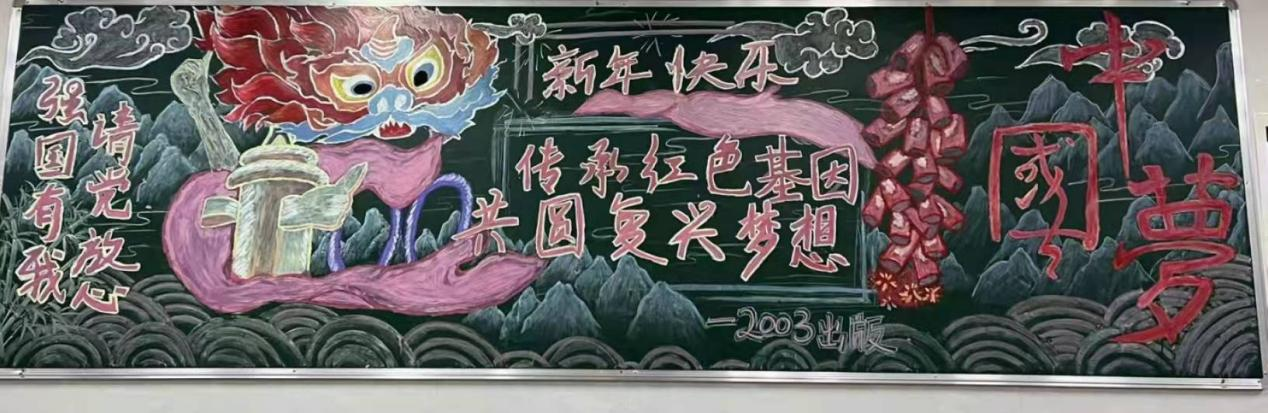 请党放心
强国有我
新年快乐
传承红色基因
共圆复兴梦想
—2003出版
中國梦